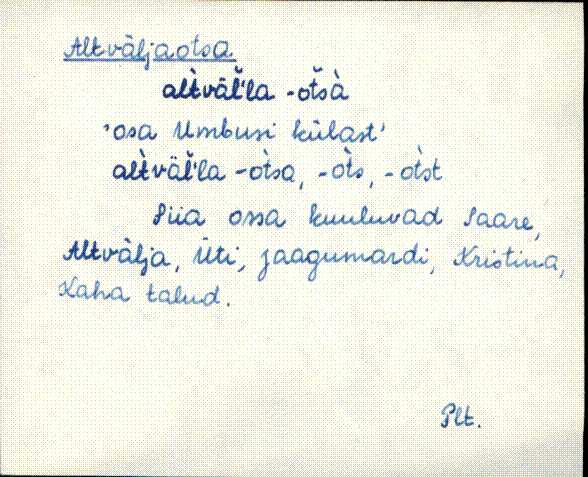 Altväljaotsa
al̀tväľ'la -ot̆sà
'osa Umbusi külast'
al̀tväľ'la -òtsa, -òts, -òtst
Siia ossa kuuluvad Saare,
Altvälja, Üti, Jaagumardi, Kristina,
Kaha talud.
Plt.